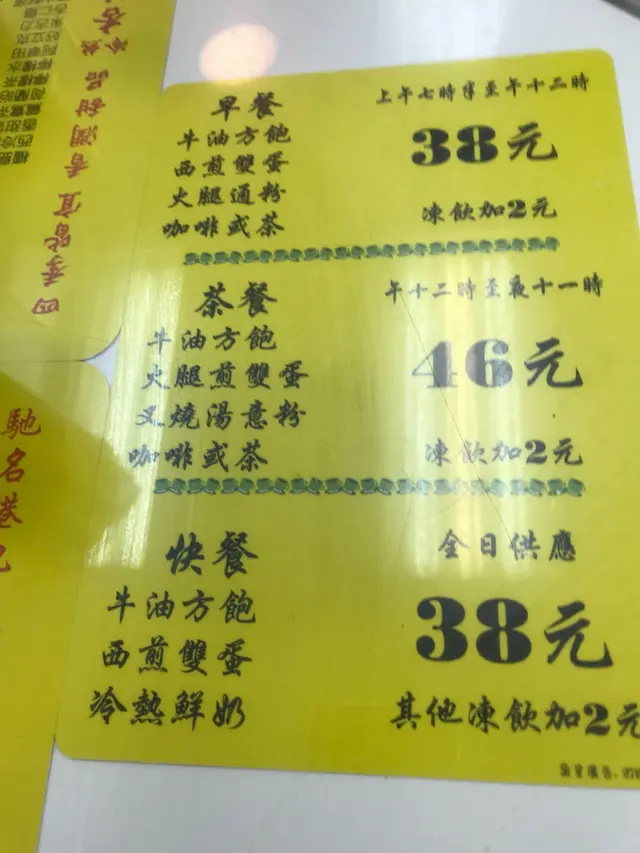 早餐
上午七時半至午十二時
牛油方飽
西煎雙蛋
火腿通粉
咖啡或茶
38元
凍飲加2元
茶餐
午十二時至夜十一時
牛油方飽
火腿煎雙蛋
叉燒湯意粉
咖啡或茶
46元
凍飲加2元
快餐
全日供應
牛油方飽
西煎雙蛋
冷熱鮮奶
38元
其他凍飲加2元
四季皆宜 香潤甜品
馳名港